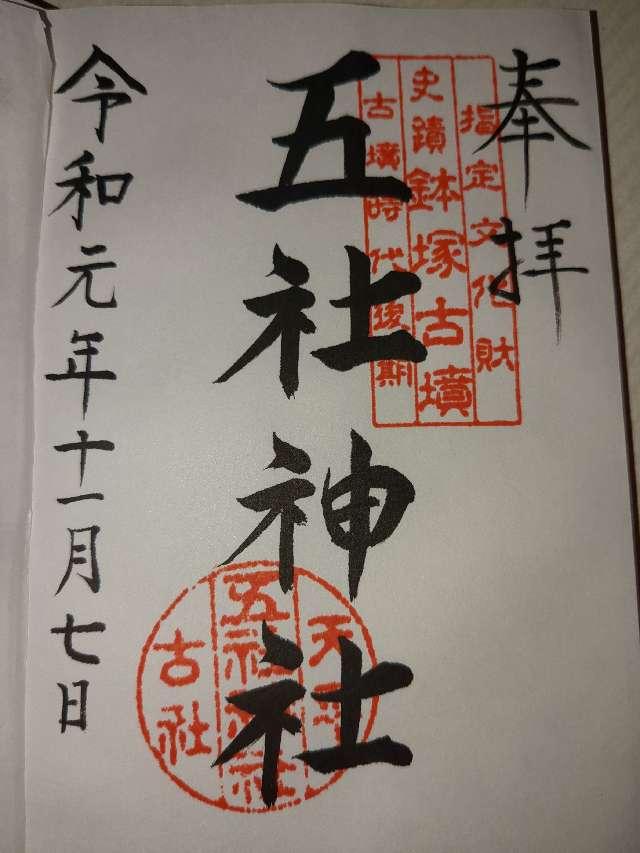 奉拝
指定文化財
史蹟鉢塚古墳
古墳時代後期
五社神社
天平
五社神社
古社
令和元年十一月七日